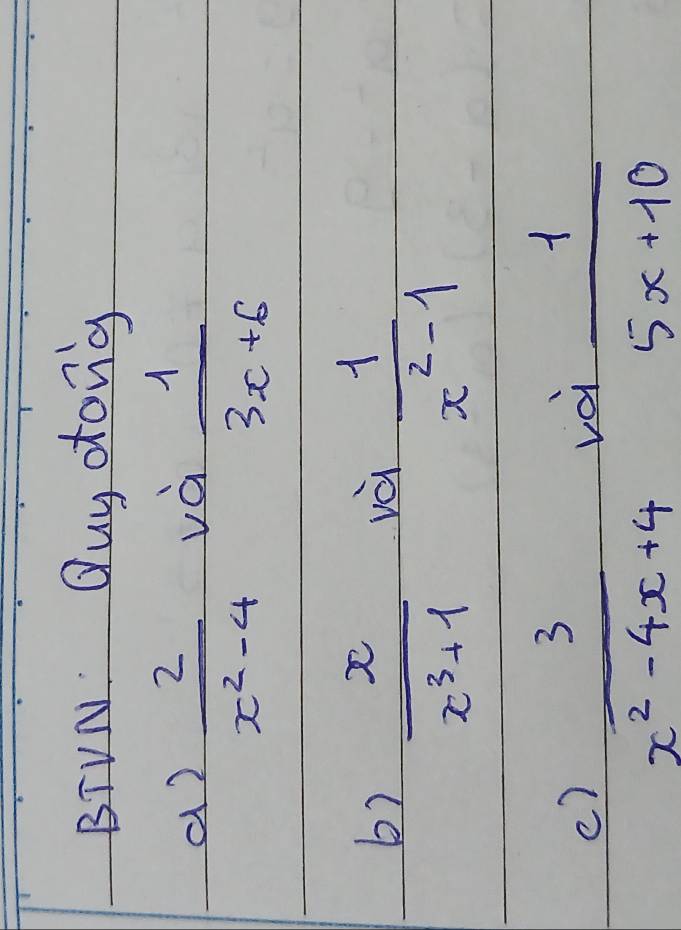 BTVN: Quy đồng
a) 2/(x² - 4) và 1/(3x + 6)
b) x/(x³ + 1) và 1/(x² - 1)
c) 3/(x² - 4x + 4) và 1/(5x + 10)